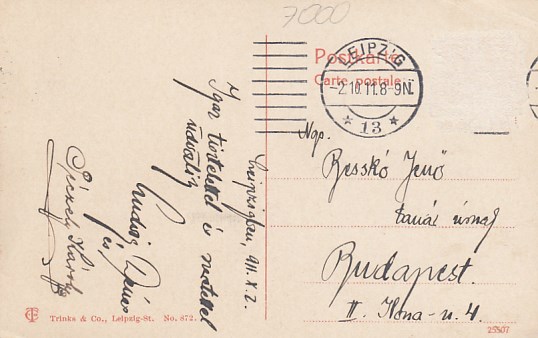 7000
Postkarte
Carte postale
LEIPZIG
-2.10.11.8-9N.
* 13 *
Leipzigben, 911. X. 2.
Igaz tisztelettel és szeretettel
üdvözli
Ludwig
és
Károly
Ngs.
Resskó Jenő
tanár úrnak
Budapest.
II. Ilona-u. 4.
TC Trinks & Co., Leipzig-St. No. 872.
25507